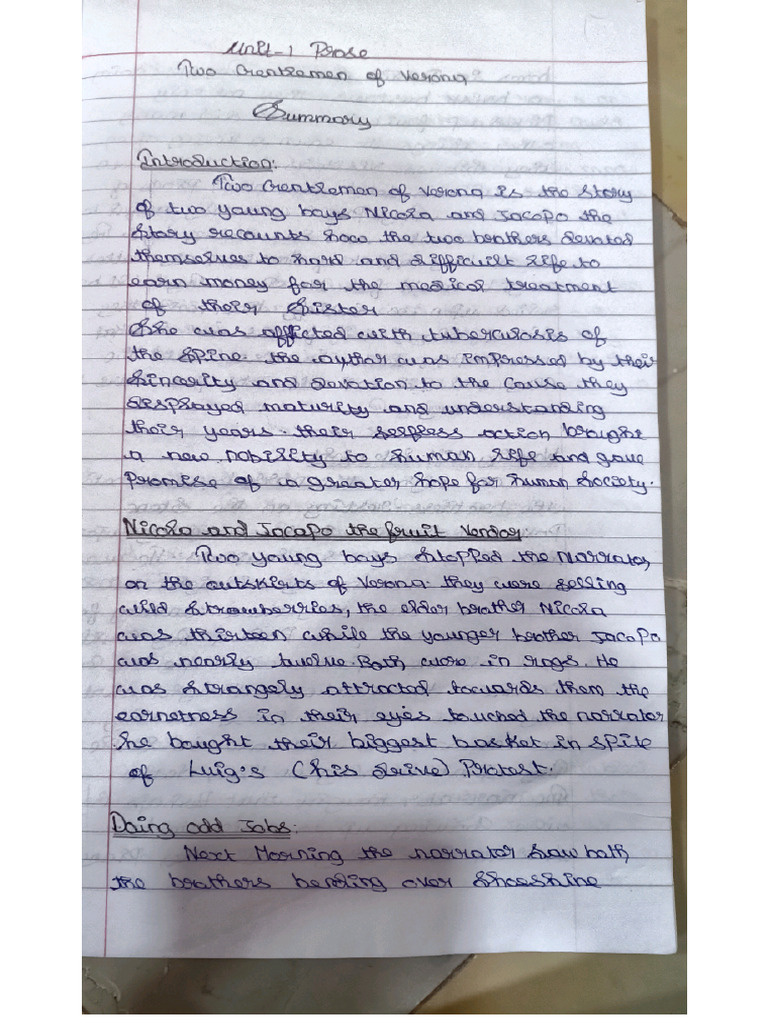 Unit-1 Prose
Two Gentlemen of Verona
Summary
Introduction:
Two Gentlemen of Verona is the story
of two young boys Nicola and Jacopo the
story recounts how the two brothers devoted
themselves to hard and difficult life to
earn money for the medical treatment
of their Sister.
She was afficted with tuberculosis of
the spine. the author was impressed by their
Sincerity and devotion to the cause they
desplayed maturity and understanding
their years. their selfless action brought
a new nobility to human life and gave
Promise of a greater hope for human Society.
Nicola and Jacopo the fruit Vendor
Two young boys stopped the Narrator
on the outskirts of Verona. they were selling
wild strawberries, the elder brother Nicola
was thirteen while the younger brother Jacopo
was nearly twelve. Both were in rags. He
was strangely attracted towards them the
earnetness in their eyes touched the narrator
he bought their biggest basket in spite
of Luig's (his drive) Protest.
Doing odd Jobs:
Next Morning the narrator saw both
the brothers bending over Shoeshine